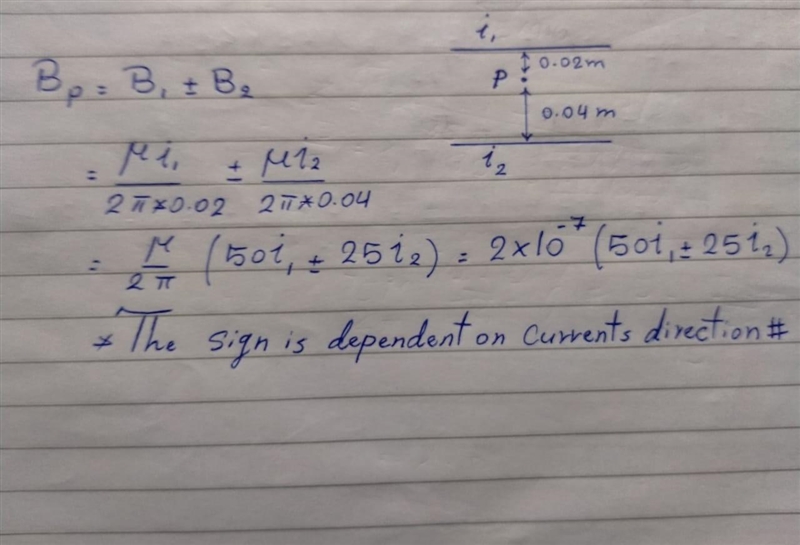 i₁
0.02m
P
0.04m
i₂
Bₚ = B₁ ± B₂
= μi₁ / 2π*0.02 ± μi₂ / 2π*0.04
= μ / 2π (50i₁ ± 25i₂) = 2×10⁻⁷ (50i₁ ± 25i₂)
* The sign is dependent on currents direction #